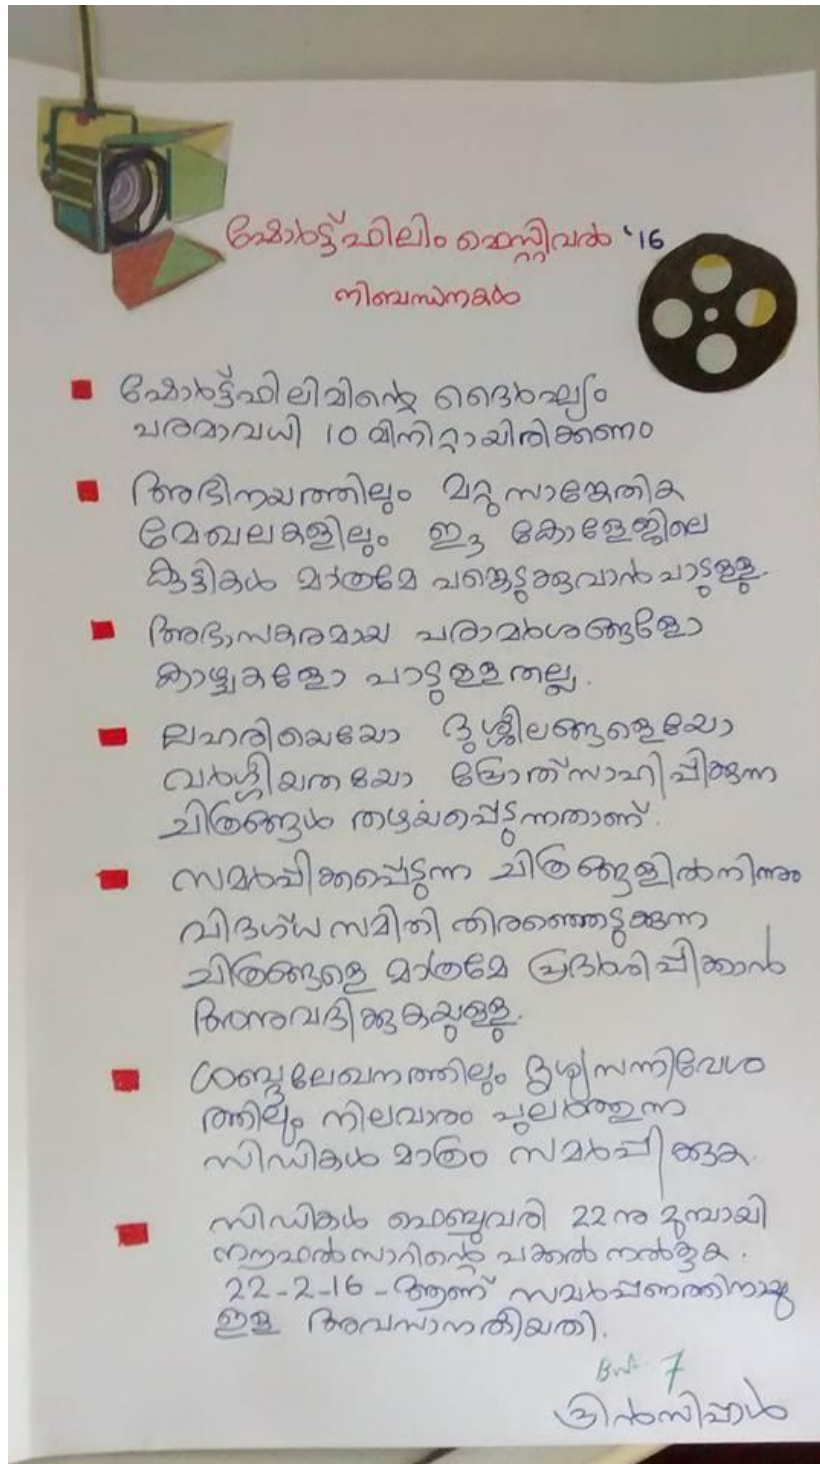 ഷോർട്ട് ഫിലിം ഫെസ്റ്റിവൽ '16
നിബന്ധനകൾ
ഷോർട്ട്ഫിലിമിന്റെ ദൈർഘ്യം
പരമാവധി 10 മിനിറ്റായിരിക്കണം
അഭിനയത്തിലും മറ്റു സാങ്കേതിക
മേഖലകളിലും ഈ കോളേജിലെ
കുട്ടികൾ മാത്രമേ പങ്കെടുക്കുവാൻ പാടുള്ളു.
അഭാസകരമായ പരാമർശങ്ങളോ
കാഴ്ചകളോ പാടുള്ളതല്ല.
ലഹരിയെയോ ദുശ്ശീലങ്ങളെയോ
വർഗ്ഗീയതയോ പ്രോത്സാഹിപ്പിക്കുന്ന
ചിത്രങ്ങൾ തഴയപ്പെടുന്നതാണ്.
സമർപ്പിക്കപ്പെടുന്ന ചിത്രങ്ങളിൽനിന്നും
വിദഗ്ധ സമിതി തിരഞ്ഞെടുക്കുന്ന
ചിത്രങ്ങളെ മാത്രമേ പ്രദർശിപ്പിക്കാൻ
അനുവദിക്കുകയുള്ളു.
ശബ്ദലേഖനത്തിലും ദൃശ്യസന്നിവേശ
ത്തിലും നിലവാരം പുലർത്തുന്ന
സിഡികൾ മാത്രം സമർപ്പിക്കുക.
സിഡികൾ ഫെബ്രുവരി 22നു മുമ്പായി
നൗഫൽസാറിന്റെ പക്കൽ നൽകുക.
22-2-16-ആണ് സമർപ്പണത്തിനായു
ള്ള അവസാനതിയതി.
പ്രിൻസിപ്പൾ